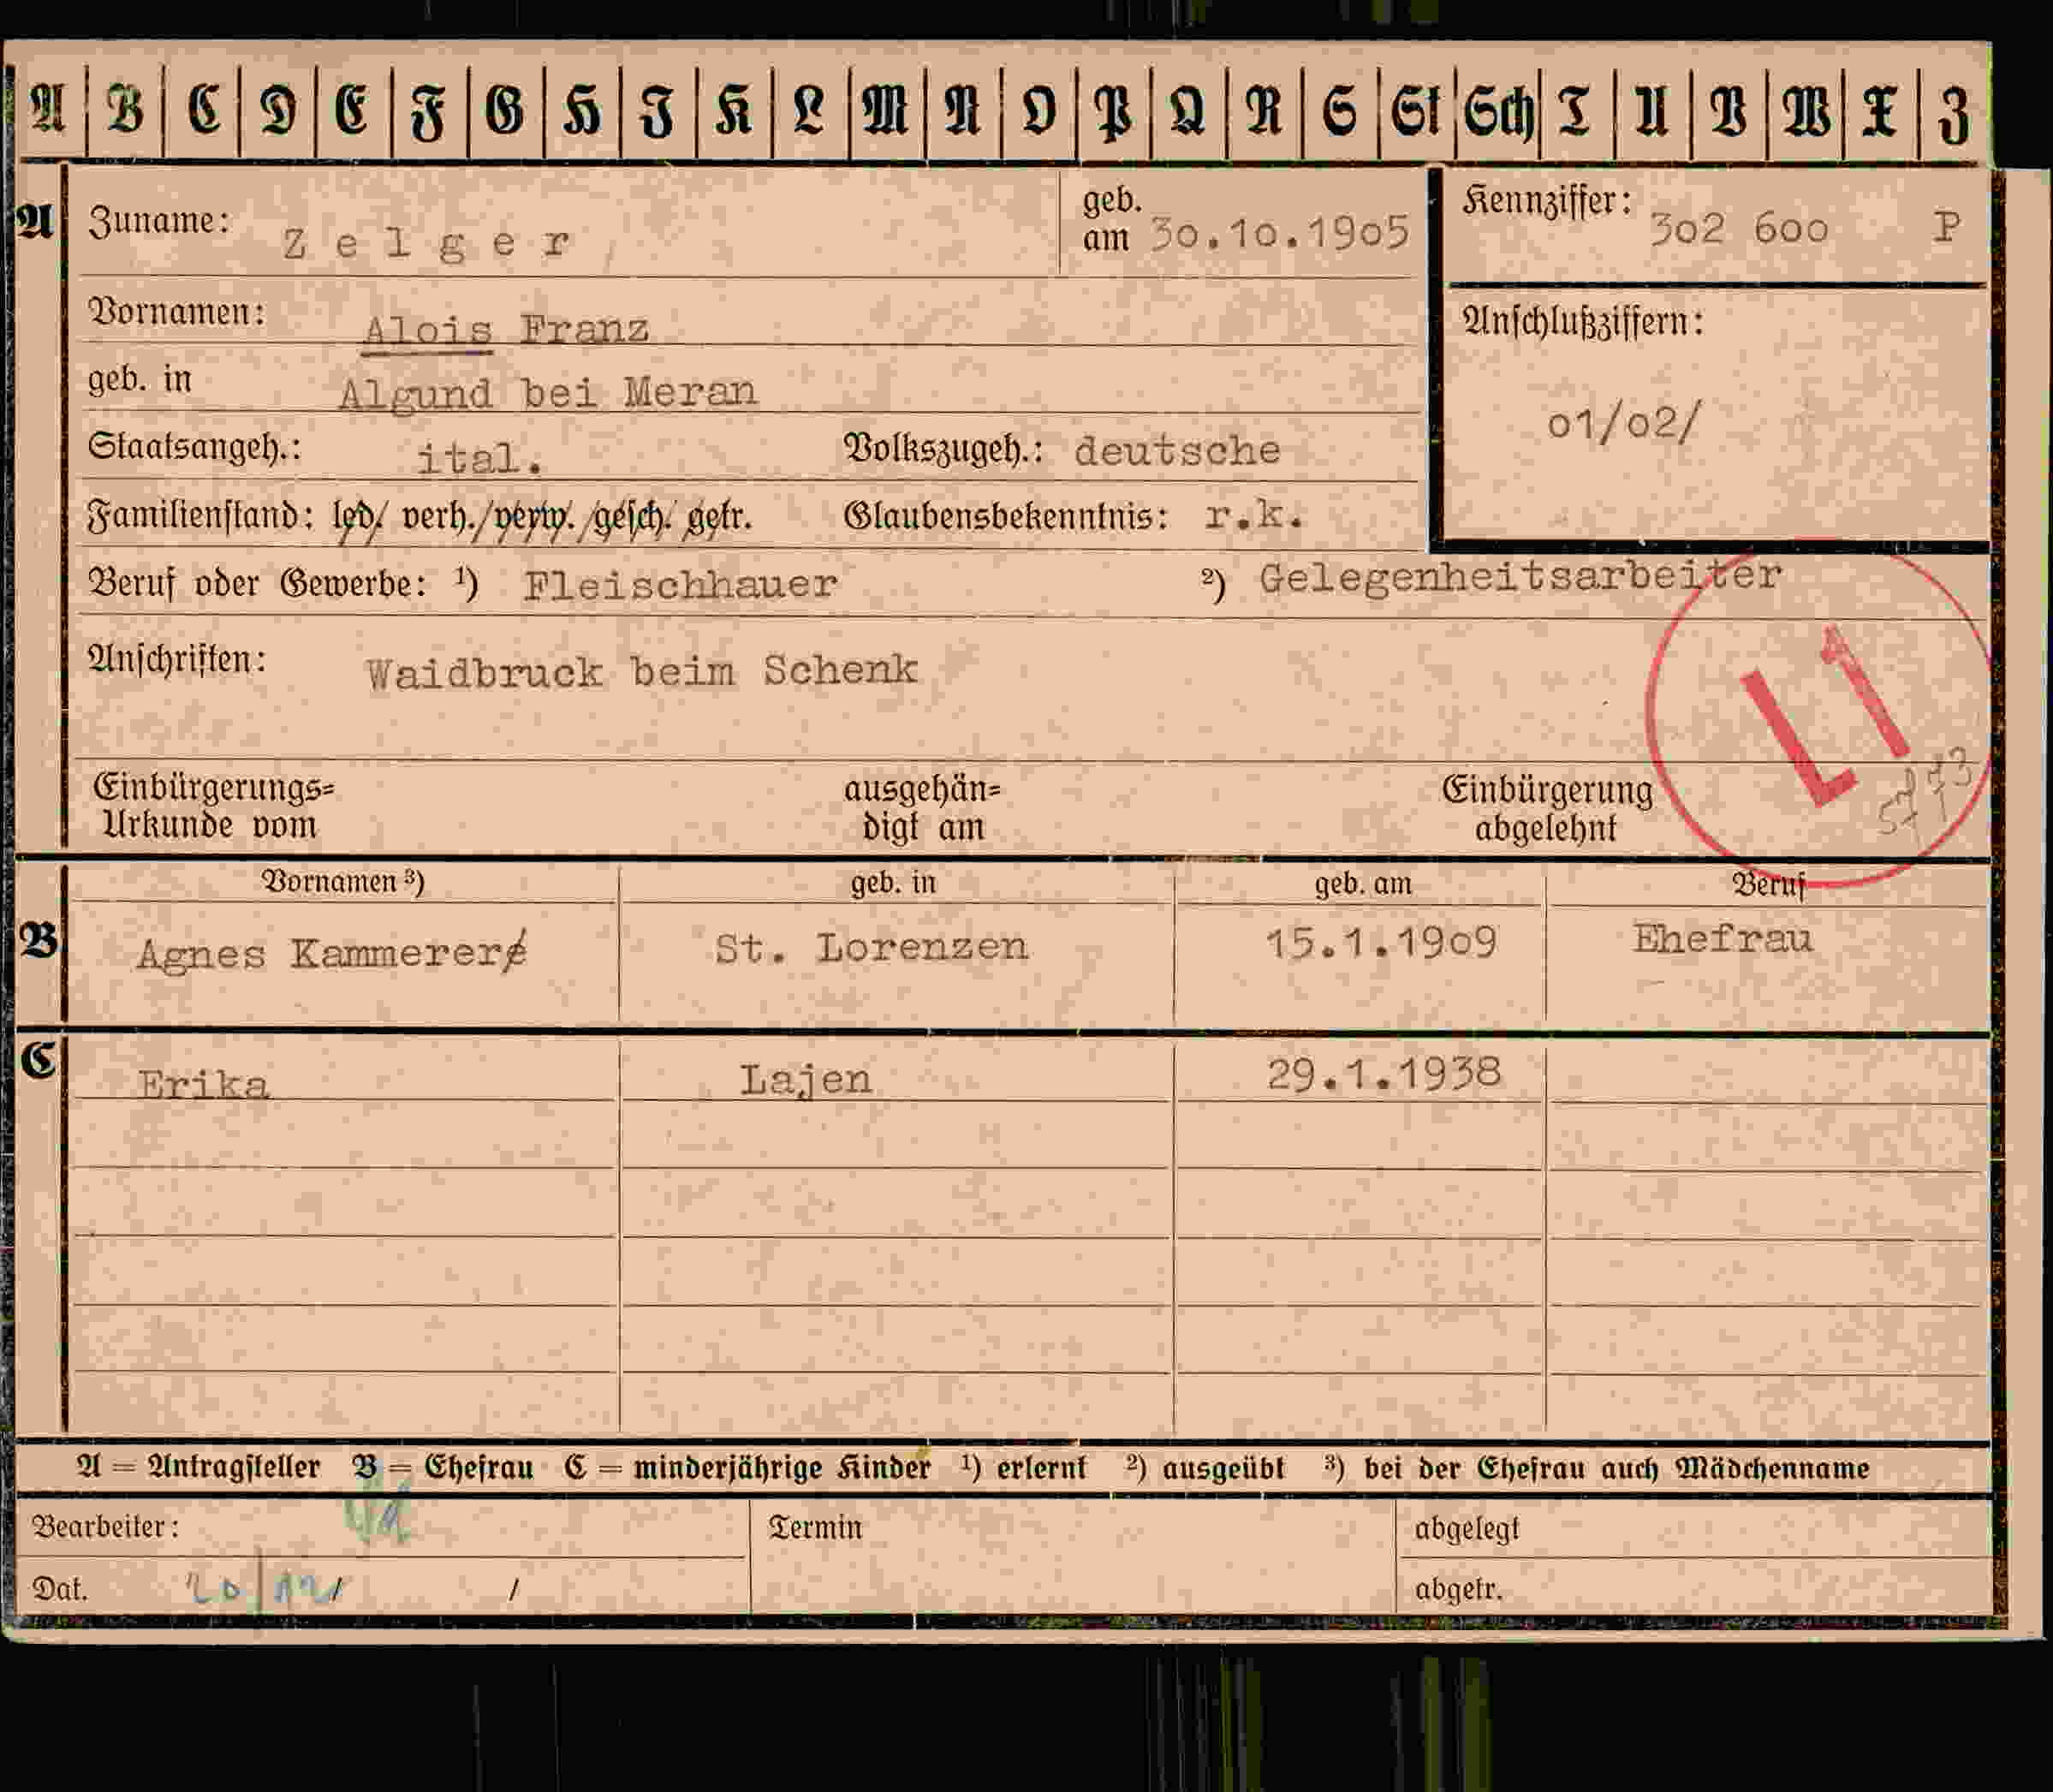 A B C D E F G H I K L M N O P Q R S St Sch T U V W X Z
A Zuname: Zelger geb. am 30.10.1905 Kennziffer: 302 600 P
Vornamen: Alois Franz Anschlußziffern:
geb. in Algund bei Meran 01/02/
Staatsangeh.: ital. Volkszugeh.: deutsche
Familienstand: led/ verh./verw./gesch./getr. Glaubensbekenntnis: r.k.
Beruf oder Gewerbe: ¹) Fleischhauer ²) Gelegenheitsarbeiter
Anschriften: Waidbruck beim Schenk
L1
Einbürgerungs= ausgehän= Einbürgerung
Urkunde vom digt am abgelehnt
Vornamen ³) geb. in geb. am Beruf
B Agnes Kammerer St. Lorenzen 15.1.1909 Ehefrau
C Erika Lajen 29.1.1938
A = Antragsteller B = Ehefrau C = minderjährige Kinder ¹) erlernt ²) ausgeübt ³) bei der Ehefrau auch Mädchenname
Bearbeiter: Termin abgelegt
Dat. 20/12/ / abgetr.